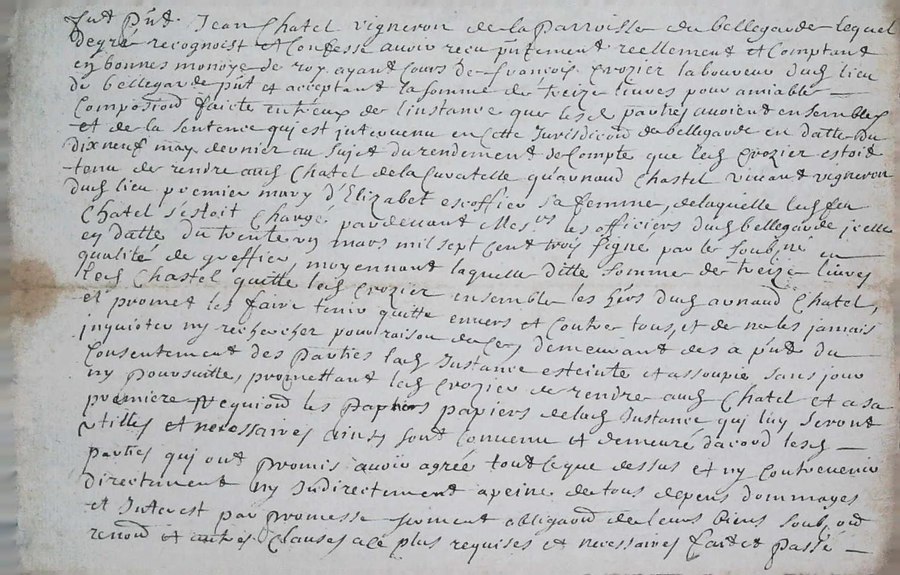 fut pnt. Jean Chatel vigneron de la Parroisse du bellegarde lequel
degré recognoist et Confesse avoir receu pntement reellement et Comptant
en bonnes monoye de roy ayant cours de francois Crozier laboureur dud lieu
de bellegarde pnt et acceptant la somme de treize livres pour amiable
Composiond faicte entreux de linstance que lesd parties avoient ensembles
et de la sentence qui est intervenu en Cette Jurisdicond de bellegarde en datte du
dixneuf may dernier au sujet du rendement de Compte que led Crozier estoit
tenu de rendre aud Chatel de la Curatelle quarnaud Chastel vivant vigneron
dud lieu premier mary d'Elizabet escoffier sa femme, de laquelle led feu
Chatel s'estoit Chargé pardevant Mes.rs les officiers dud bellegarde jcelle
en datte du trente un mars mil sept Cent trois signé par le soubné en
qualité de greffier moyennant laquelle ditte somme de treize livres
led Chastel quitte led Crozier ensemble les hers dud arnaud Chatel,
et promet les faire tenir quitte envers et Contre tous, et de ne les jamais
jnquioter ny rechercher pour raison de Ce, demeurant des a pnt du
Consentement des Parties lad Instance esteinte et assoupie sans jour
ny Poursuitte, promettant led Crozier de rendre aud Chatel et a sa
premiere Requiond les papiers de lad Instance qui luy seront
utilles et necessaires ainsy sont Convenu et demeuré dacord lesd
parties qui ont promis avoir agrée tout Ce que dessus et ny Contrevenir
directement ny Indirectement a peine de tous depens dommages
et Interest par Promesse serment obligaond de leurs biens soub, ond
renond et autres Clauses a Ce plus requises et necessaires fait et passé